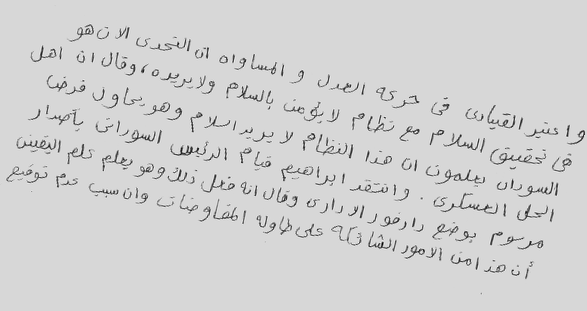 واعتبر القيادى فى حركه العدل و المساواه ان التحدى الان هو
فى تحقيق السلام مع نظام لا يؤمن بالسلام ولا يريده، وقال ان اهل
السودان يعلمون ان هذا النظام لا يريد السلام وهو يحاول فرض
الحل العسكرى . وانتقد ابراهيم قيام الرئيس السودانى بأصدار
مرسوم بوضع دارفور الادارى وقال انه فعل ذلك وهو يعلم علم اليقين
أن هذا من الامور الشائكه على طاوله المفاوضات وان سبب عدم توقيع